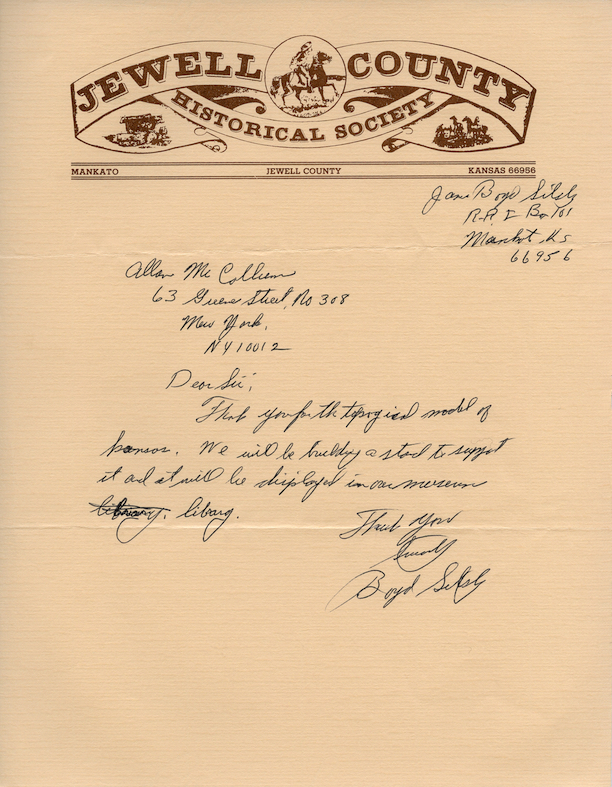 JEWELL COUNTY
HISTORICAL SOCIETY
MANKATO JEWELL COUNTY KANSAS 66956
Boyd
R.R. Box 101
Mankat, Ks
66956
Allan Mc Collum
63 Greene Street, No 308
New York,
NY 10012
Dear Sir,
Thank you for the model of
kansas. We will be building a stand to support
it and it will be displayed in our museum
library, libary.
Thank You
Boyd